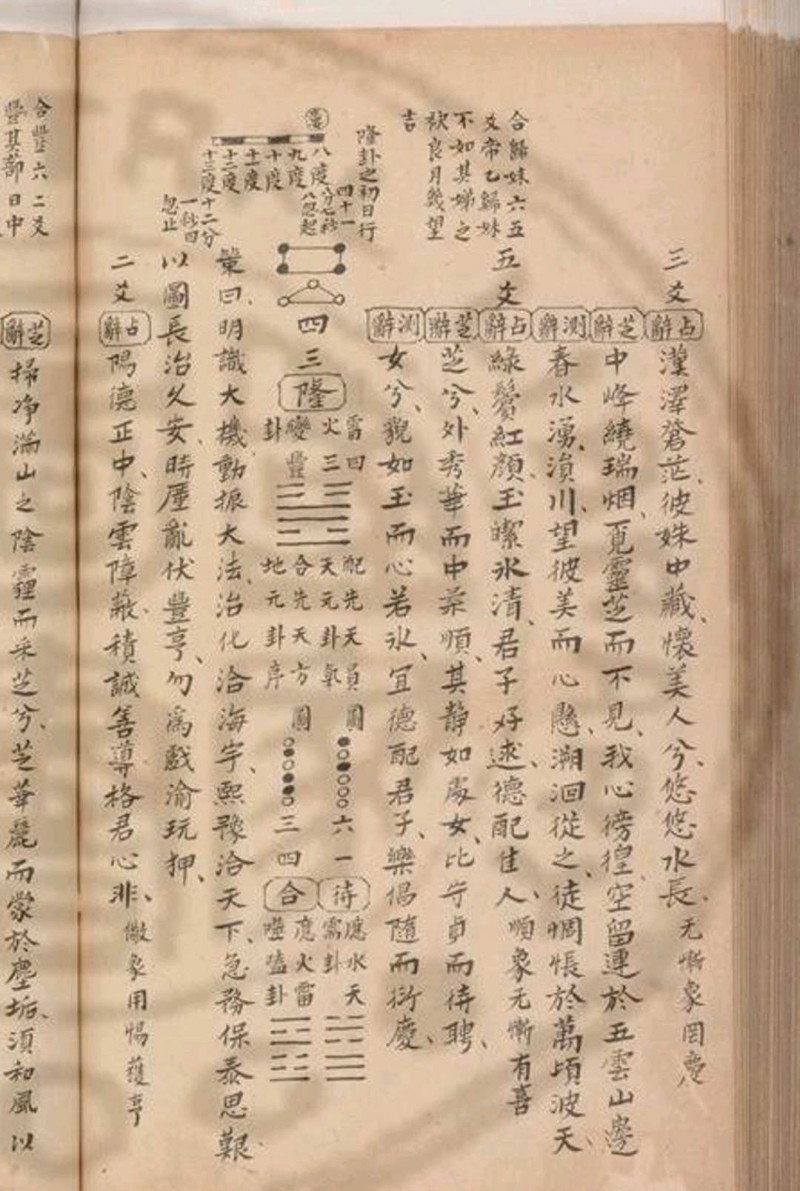 三爻
占辭 瀅澤蒼茫、彼姝中藏、懷美人兮、悠悠水長、无慚象罔慶
芝辭 中峰繞瑞烟、覓靈芝而不見、我心徬徨、空留連於五雲山邊
測辭 春水湧、湞川、望彼美而心懸、溯洄從之、徒惆悵於萬頃波天、
合歸妹六五
爻帝乙歸妹
不如其娣之
袂良月幾望
吉
五爻
占辭 綠鬢紅顏、玉潔冰清、君子好逑、德配佳人、順象无慚有喜
芝辭 芝兮、外秀華而中柔順、其靜如處女、比守貞而待聘、
測辭 女兮、貌如玉而心若冰、宜德配君子、樂倡隨而衍慶、
隆卦之初日行
四十一
分七秒
八忽起
八度
九度
十度
十一度
十二度
十三度
十二分
一秒四
忽止
四三
隆
雷四
火三
變豐
卦
配先天員圖
天元卦氣
合先天方圖
地元卦序
六一
待
應水天
需卦
三四
合
應火雷
噬嗑卦
彖曰、明識大機、動振大法、治化洽海宇、熙豫洽天下、急務保泰思艱
以圖長治久安、時厪亂伏豐亨、勿爲戲渝玩押、
二爻
占辭 陽德正中、陰雲障蔽、積誠善導、格君心非、儆象用惕蒦亨
合豐六二爻
豐其蔀日中
芝辭 掃净滿山之陰霾而采芝兮、芝華麗而蒙於塵垢、須和風以